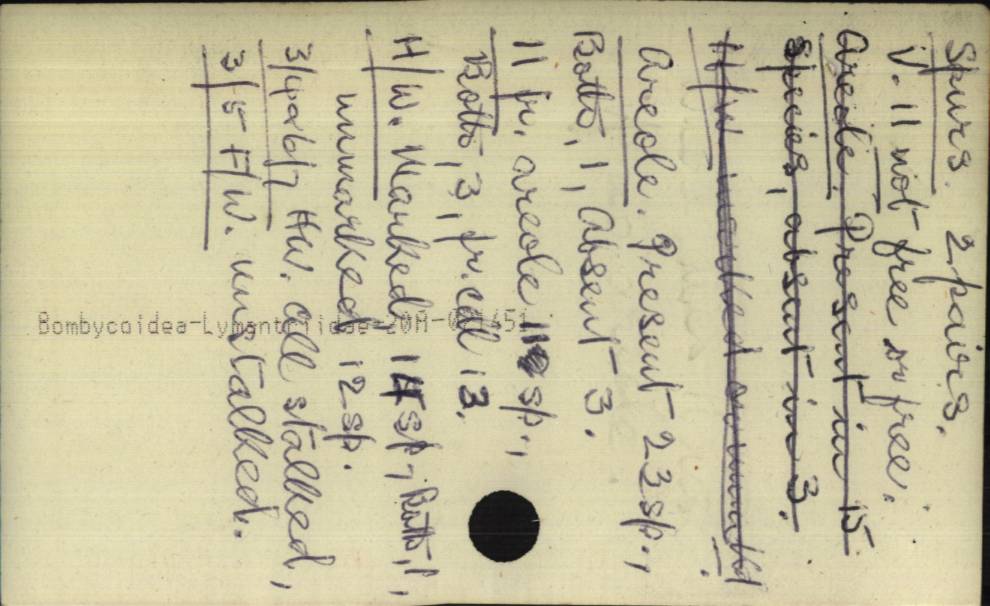 Spurs. 2 pairs.
V. 11 not free or free.
Areole. Present in 15
species, absent in 3.
H/W marked or unmkd.
Areole. Present 23 sp.,
Both, 1, Absent 3.
11 fr. areole 11 sp.,
Both, 3, fr. cell 13.
H/W. Marked 14 sp, Both, 1,
unmarked 12 sp.
3/4 or 6/7 HW. all stalked,
3/5 F/W. unstalked.
Bombycoidea-Lymantriidae-20A-